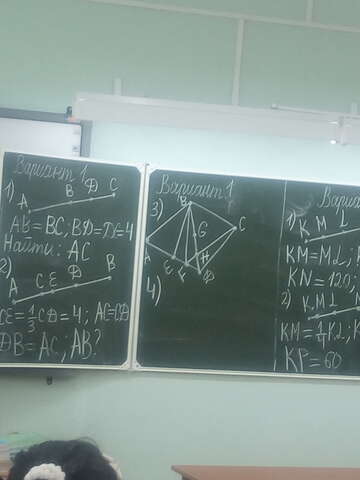 Вариант 1
1)
A B D C
AB = BC; BD = DC = 4
Найти: AC
2)
A C E D B
CE = 1/3 CD = 4; AC = CD
DB = AC; AB?
Вариант 1
3)
B
G
C
A E F H D
4)
1)
K M L
KM = ML;
KN = 120,
2)
K M L
KM = 1/4 KL;
KP = 60